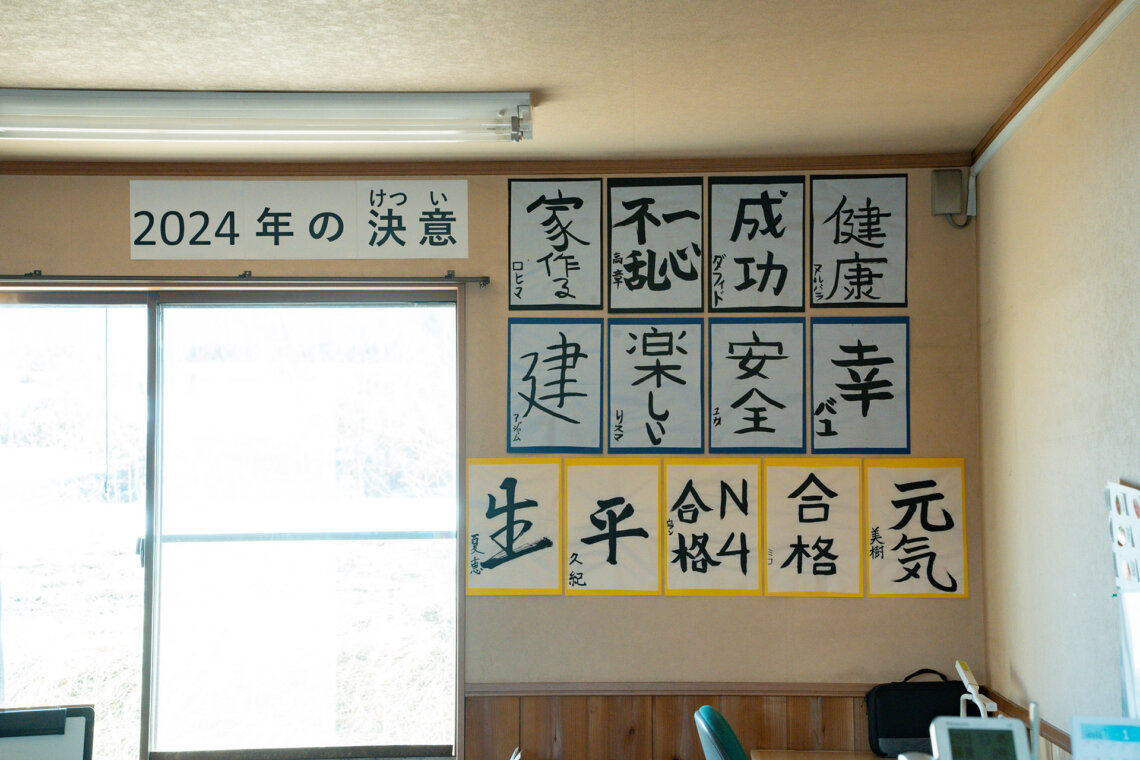 けつ い
2024 年 の 決 意
家
作る
ロヒマ
一心
不乱
高章
成功
ダフィド
健康
ヌルバラ
建
アンジャム
楽しい
リスマ
安全
ユタ
幸
バユ
生
夏恵
平
久紀
N4
合格
ウン
合格
ミコ
元気
美樹
1